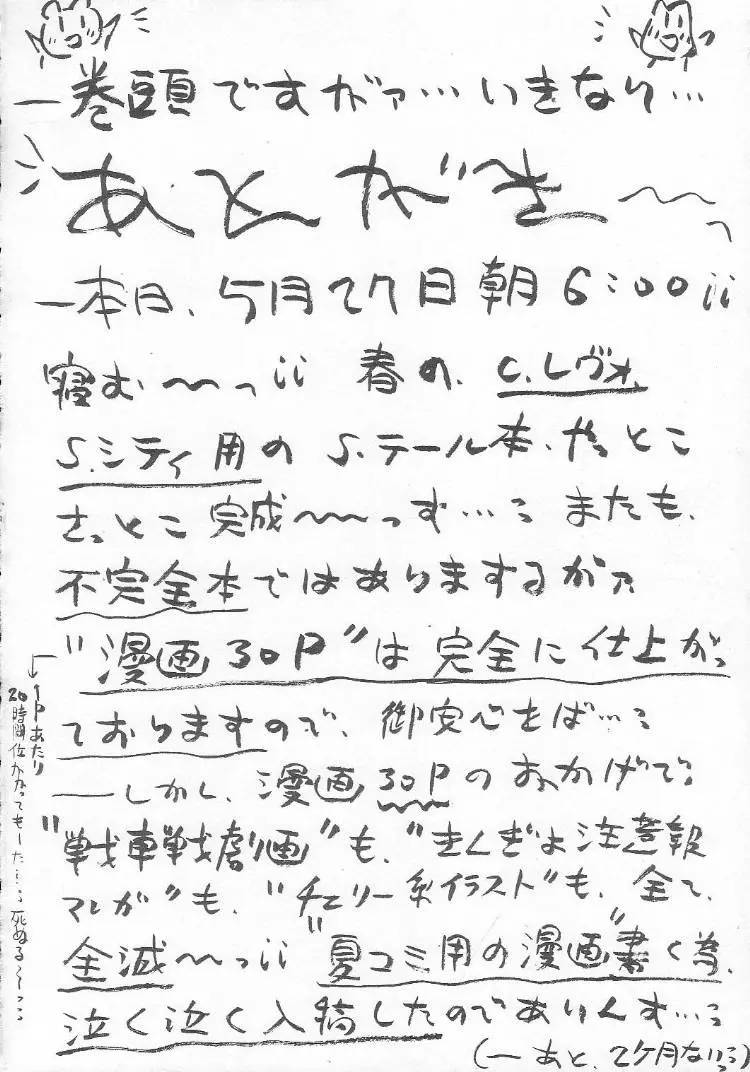 一巻頭ですがァ…いきなり…
あとがき〜〜っ
一本日、5月27日朝6:00!!
寝む〜〜っ!! 春の、C.レヴォ、
S.シティ用のS.テール本、やっとこ
さっとこ完成〜〜〜っす…
またも、
不完全本ではありまするが、
"漫画30P"は完全に仕上がっ
ておりますので、御安心をば…
←1Pあたり
20時間位かかってもーた… 死ぬる〜っ
――しかし、漫画30Pのおかげで
"戦車戦劇画"も、"きんぎょ注意報
マンガ"も、"チェリー系イラスト"も、全て、
全滅〜〜っ!! "夏コミ用の漫画"書く為、
泣く泣く入稿したのでありんす…
(一あと、2ヶ月ないっ)